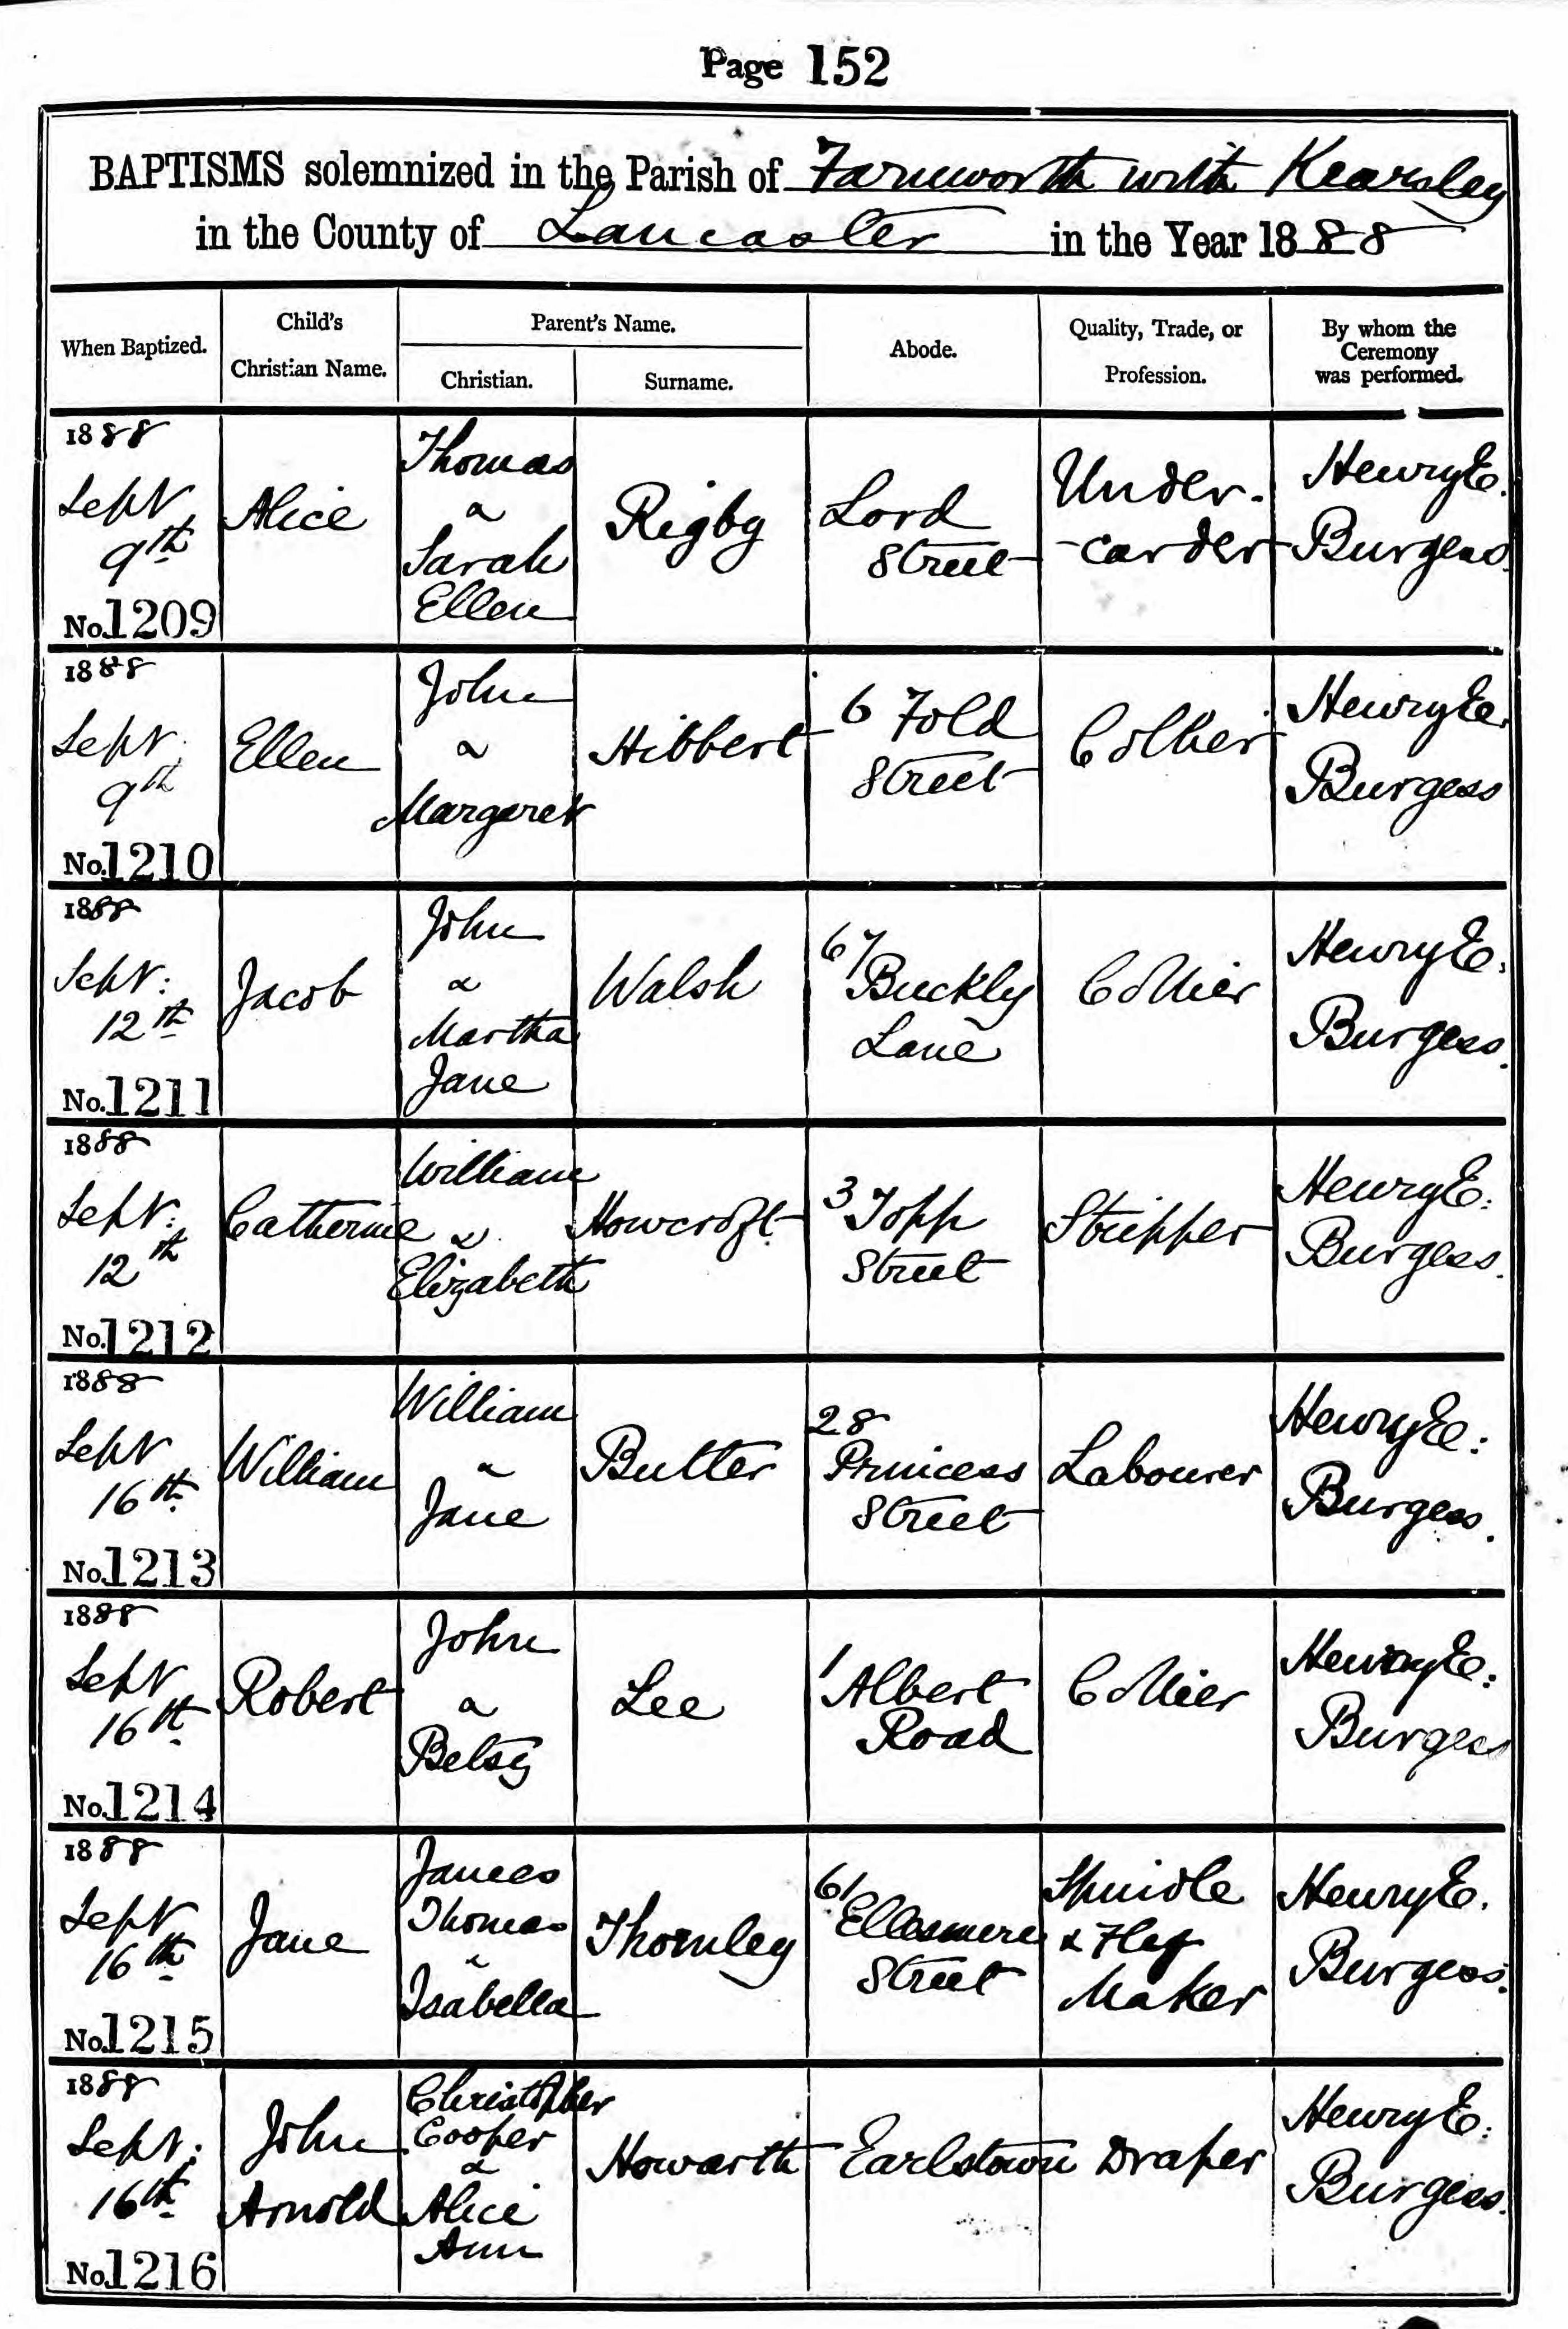 Page 152
BAPTISMS solemnized in the Parish of Farnworth with Kearsley
in the County of Lancaster in the Year 1888
When Baptized.
Child's
Christian Name.
Parent's Name.
Christian.
Surname.
Abode.
Quality, Trade, or
Profession.
By whom the
Ceremony
was performed.
1888
Sept
9th
No.1209
Alice
Thomas
&
Sarah
Ellen
Rigby
Lord
Street
Under-
-carder
Henry E.
Burgess.
1888
Sept.
9th
No.1210
Ellen
John
&
Margaret
Hibbert
6 Fold
Street
Collier
Henry E.
Burgess
1888
Sept:
12th
No.1211
Jacob
John
&
Martha
Jane
Walsh
67
Buckly
Lane
Collier
Henry E.
Burgess.
1888
Sept:
12th
No.1212
Catherine
William
&
Elizabeth
Howcroft
3 Topp
Street
Stripper
Henry E:
Burgess.
1888
Sept
16th
No.1213
William
William
&
Jane
Butter
28
Princess
Street
Labourer
Henry E:
Burgess.
1888
Sept
16th
No.1214
Robert
John
&
Betsy
Lee
1
Albert
Road
Collier
Henry E:
Burgess
1888
Sept
16th
No.1215
Jane
James
Thomas
&
Isabella
Thornley
61
Ellesmere
Street
Spindle
& Fly
Maker
Henry E.
Burgess.
1888
Sept:
16th
No.1216
John
Arnold
Christopher
Cooper
&
Alice
Ann
Howarth
Earlstown
Draper
Henry E:
Burgess.